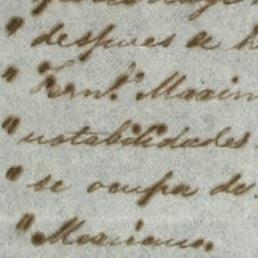 " despues de h
" Fern.do Maxim
" notabilidades
" se ocupa de
" Mexicano.